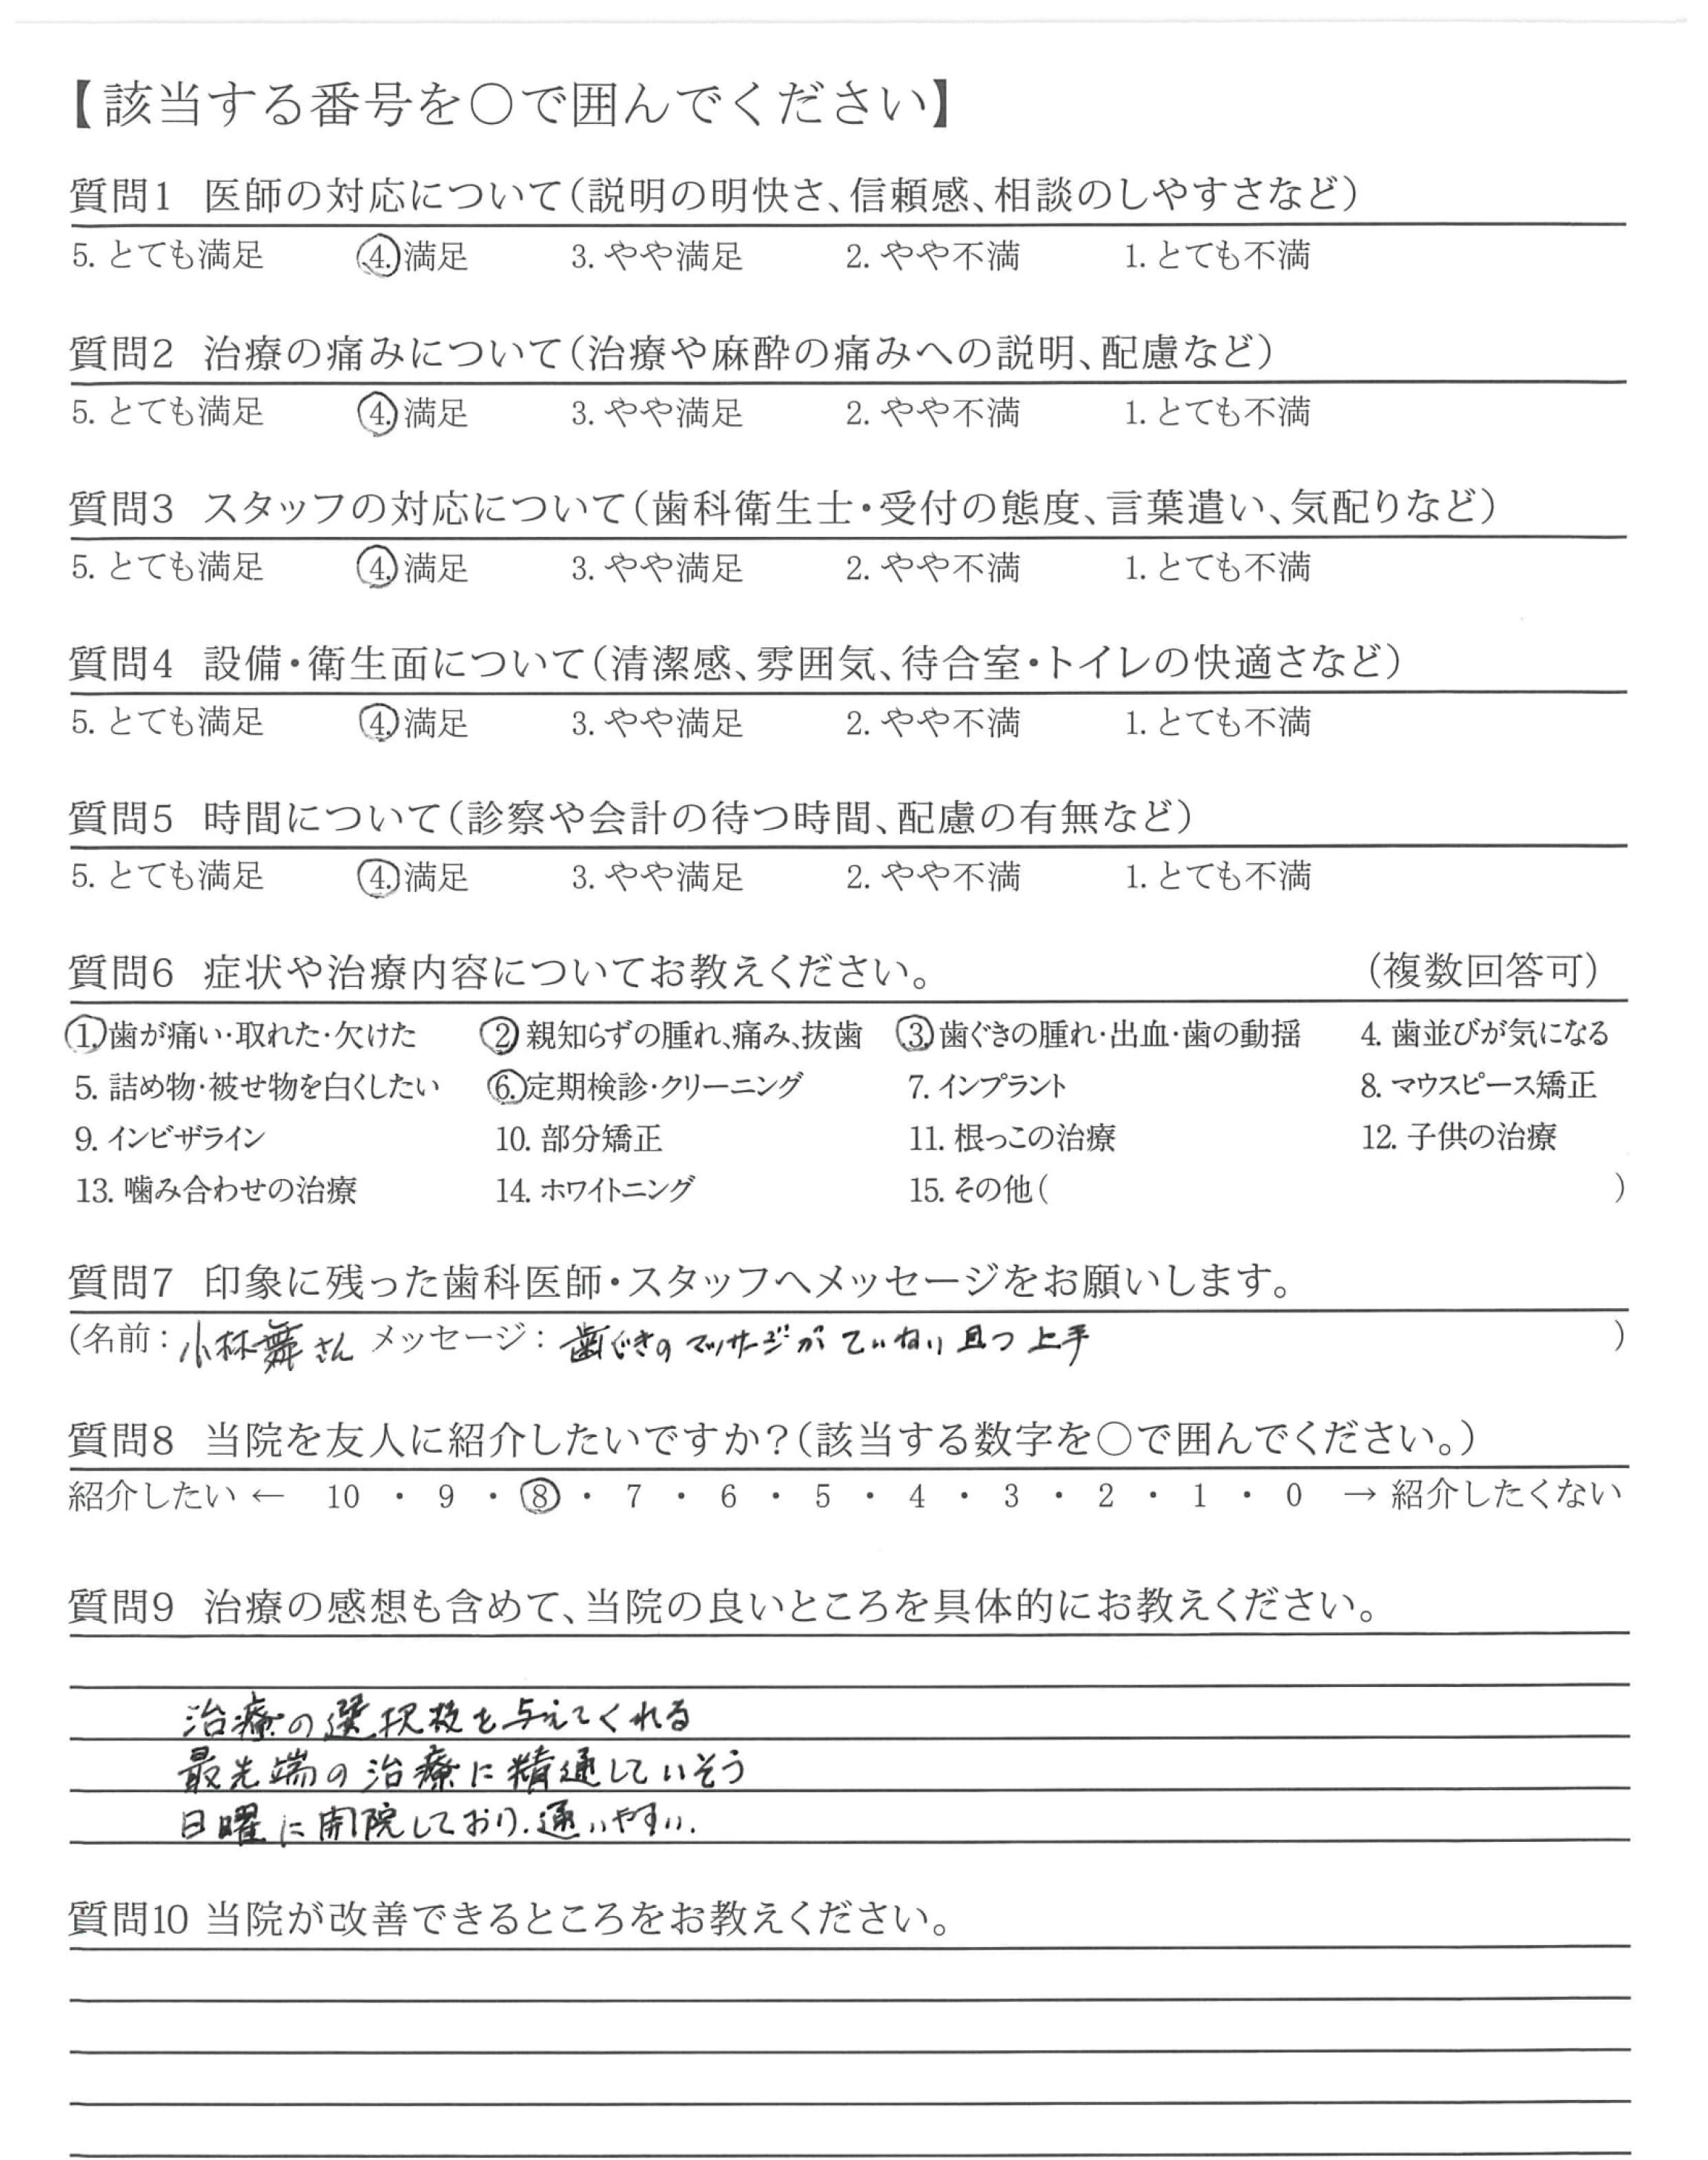 【該当する番号を○で囲んでください】
質問1 医師の対応について(説明の明快さ、信頼感、相談のしやすさなど)
5. とても満足 4. 満足 3. やや満足 2. やや不満 1. とても不満
質問2 治療の痛みについて(治療や麻酔の痛みへの説明、配慮など)
5. とても満足 4. 満足 3. やや満足 2. やや不満 1. とても不満
質問3 スタッフの対応について(歯科衛生士・受付の態度、言葉遣い、気配りなど)
5. とても満足 4. 満足 3. やや満足 2. やや不満 1. とても不満
質問4 設備・衛生面について(清潔感、雰囲気、待合室・トイレの快適さなど)
5. とても満足 4. 満足 3. やや満足 2. やや不満 1. とても不満
質問5 時間について(診察や会計の待つ時間、配慮の有無など)
5. とても満足 4. 満足 3. やや満足 2. やや不満 1. とても不満
質問6 症状や治療内容についてお教えください。 (複数回答可)
1. 歯が痛い・取れた・欠けた 2. 親知らずの腫れ、痛み、抜歯 3. 歯ぐきの腫れ・出血・歯の動揺 4. 歯並びが気になる
5. 詰め物・被せ物を白くしたい 6. 定期検診・クリーニング 7. インプラント 8. マウスピース矯正
9. インビザライン 10. 部分矯正 11. 根っこの治療 12. 子供の治療
13. 噛み合わせの治療 14. ホワイトニング 15. その他( )
質問7 印象に残った歯科医師・スタッフへメッセージをお願いします。
(名前：小林舞さん メッセージ：歯ぐきのマッサージがていねい且つ上手 )
質問8 当院を友人に紹介したいですか？(該当する数字を○で囲んでください。)
紹介したい ← 10 ・ 9 ・ 8 ・ 7 ・ 6 ・ 5 ・ 4 ・ 3 ・ 2 ・ 1 ・ 0 → 紹介したくない
質問9 治療の感想も含めて、当院の良いところを具体的にお教えください。
治療の選択枝を与えてくれる
最先端の治療に精通していそう
日曜に開院しており、通いやすい。
質問10 当院が改善できるところをお教えください。